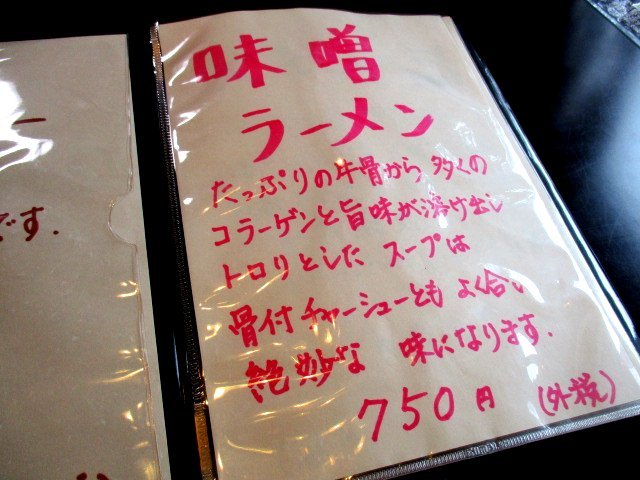 味噌
ラーメン
たっぷりの牛骨から多くの
コラーゲンと旨味が溶け出し
トロりとした スープは
骨付チャーシューともよく合い
絶妙な 味になります.
750円 (外税)
です.